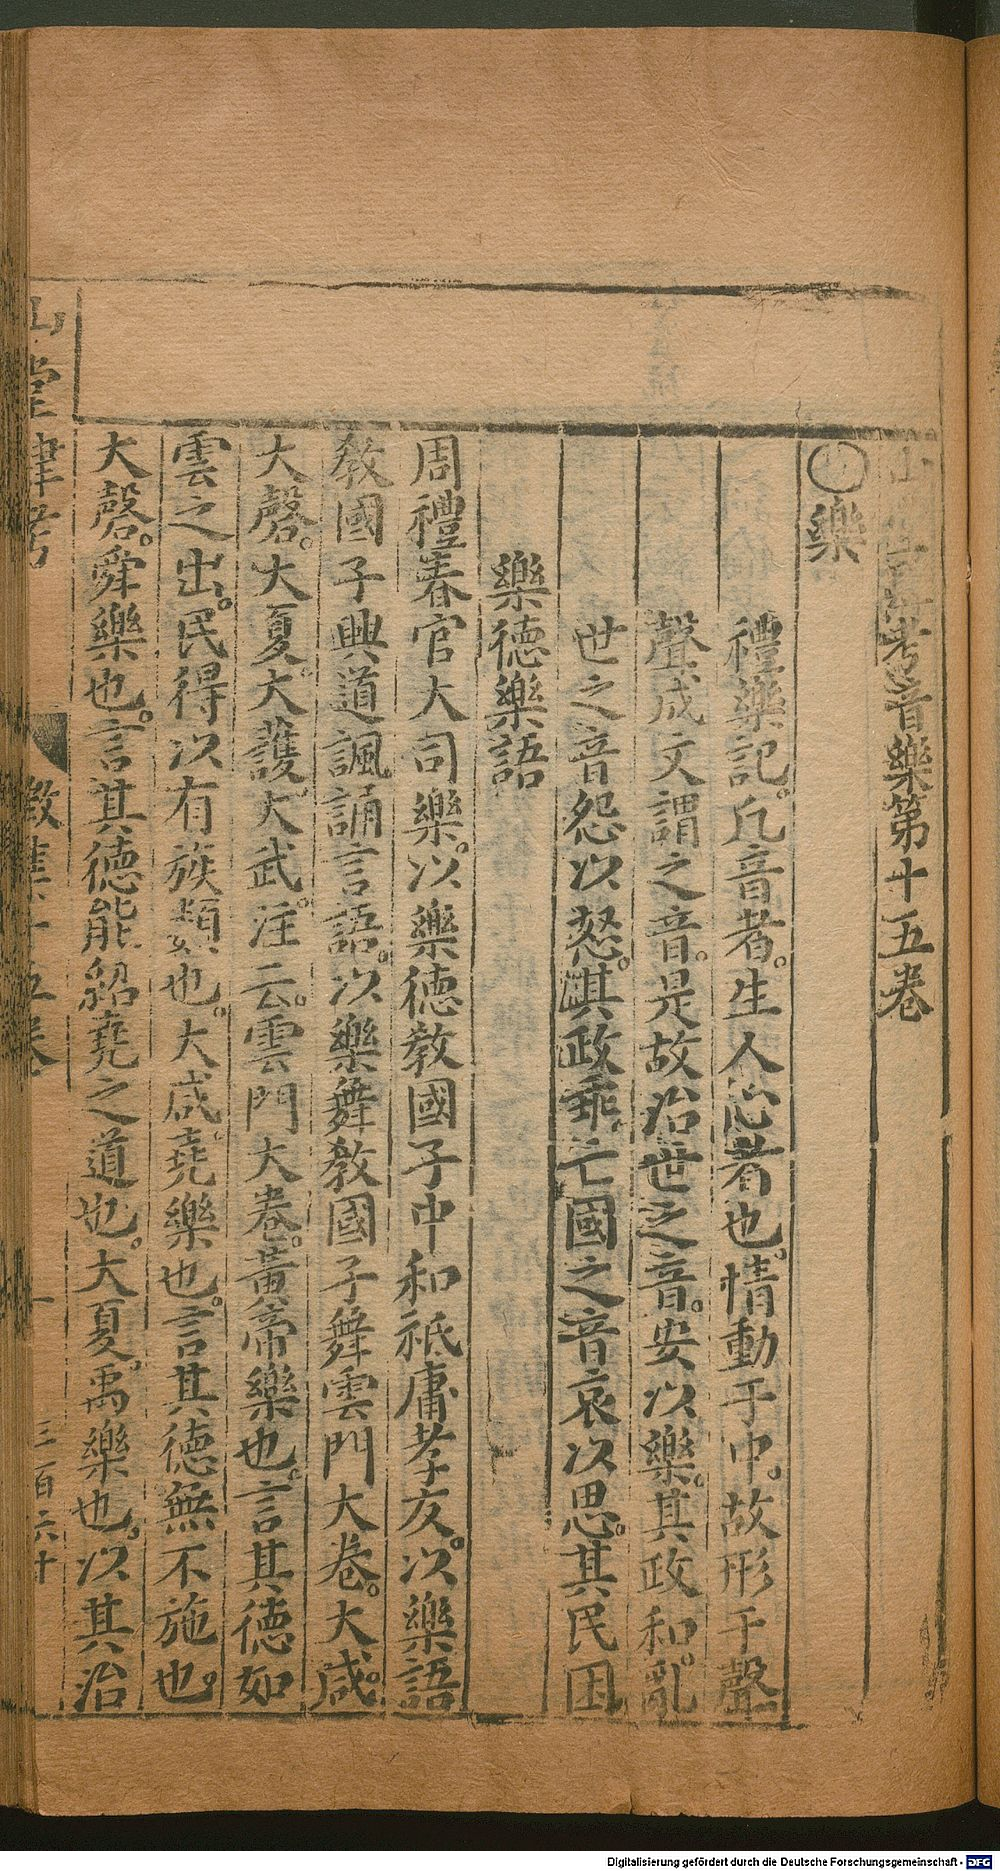 山堂肆考音樂第十五卷
樂
禮樂記。凡音者。生人心者也。情動于中。故形于聲
聲成文謂之音。是故治世之音。安以樂。其政和。亂
世之音怨以怒。其政乖。亡國之音哀以思。其民困
樂德樂語
周禮春官大司樂。以樂德教國子中和祗庸孝友。以樂語
教國子興道諷誦言語。以樂舞教國子舞雲門大卷。大咸。
大磬。大夏。大護。大武。注云。雲門大卷。黃帝樂也。言其德如
雲之出。民得以有族類也。大咸。堯樂也。言其德無不施也。
大磬。舜樂也。言其德能紹堯之道也。大夏。禹樂也。以其治
山堂肆考
徵集十五卷
一
三百六十
Digitalisierung gefördert durch die Deutsche Forschungsgemeinschaft - DFG